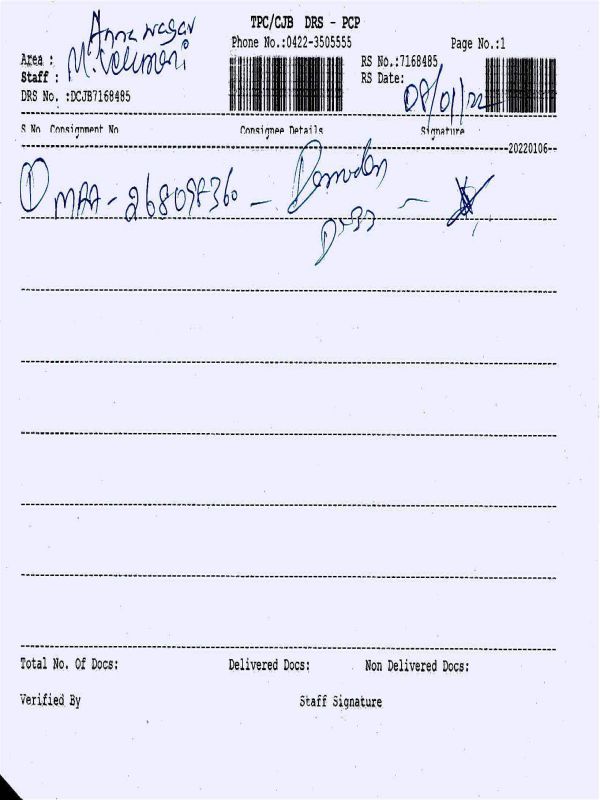 TPC/CJB DRS - PCP
Phone No.:0422-3505555 Page No.:1
Area : Anna nagar
Staff : M.
RS No.:7168485
RS Date: 08/01/22
DRS No. :DCJB7168485
S No Consignment No Consignee Details Signature
20220106
① MAA - 268098360 -
Total No. Of Docs: Delivered Docs: Non Delivered Docs:
Verified By Staff Signature